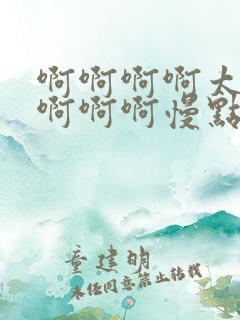 啊啊啊啊大
啊啊啊慢點
童建明
未经同意禁止转载